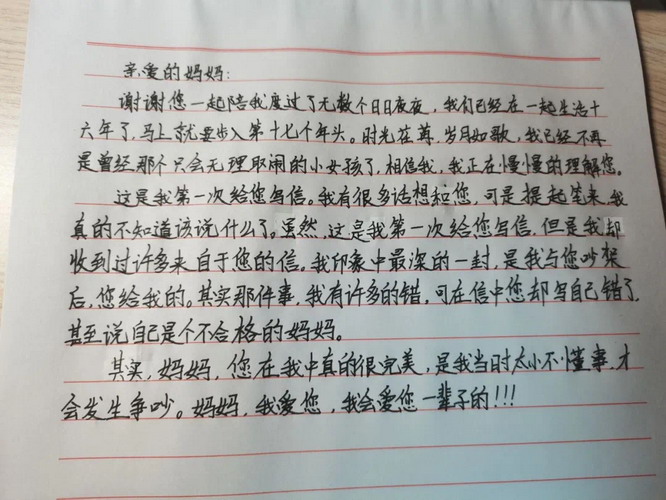 亲爱的妈妈:
谢谢您一起陪我度过了无数个日日夜夜,我们已经在一起生活十
六年了,马上就要步入第十七个年头。时光荏苒,岁月如歌,我已经不再
是曾经那个只会无理取闹的小女孩了,相信我,我正在慢慢的理解您。
这是我第一次给您写信。我有很多话想和您,可是提起笔来,我
真的不知道该说什么了。虽然,这是我第一次给您写信,但是我却
收到过许多来自于您的信。我印象中最深的一封,是我与您吵架
后,您给我的。其实那件事,我有许多的错,可在信中您却写自己错了,
甚至说自己是个不合格的妈妈。
其实,妈妈,您在我中真的很完美,是我当时太小不懂事,才
会发生争吵。妈妈,我爱您,我会爱您一辈子的!!!